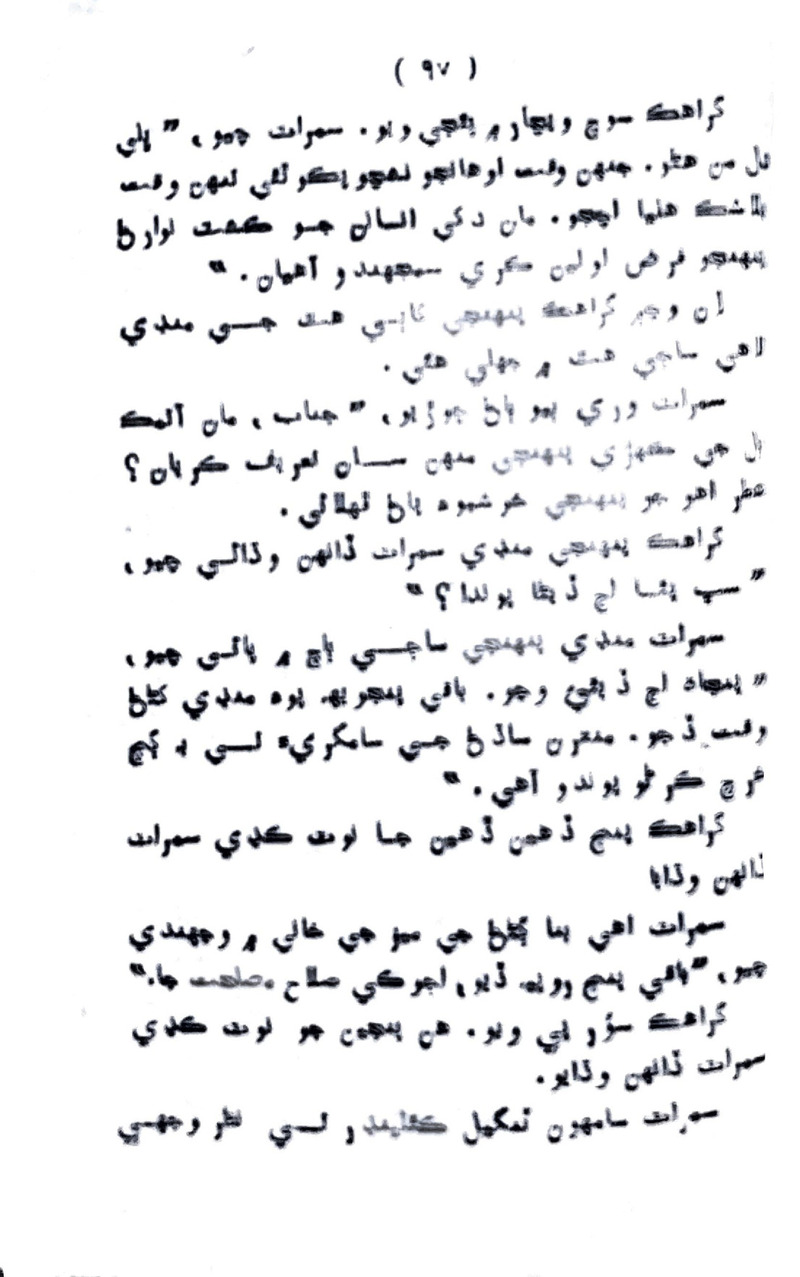 ( ٩٧ )
گراهڪ سوچ ويچار ۾ پئجي ويو. سمرات چيو، ”ڀلي
من هڻو. جنهن وقت اوهانجو نهچو پڪو ٿئي تنهن وقت
بلاشڪ هليا اچجو. مان دکي انسان جو ڪشٽ نوارڻ
پنهنجو فرض اولين ڪري سمجهندو آهيان.“
ان وچ ۾ گراهڪ پنهنجي کاٻي هٿ جي منڊي
لاهي ساڄي هٿ ۾ جهلي هئي.
سمرات وري ٻيو ٻاڻ ڇوڙيو، ”جناب، مان آلمڪ
جي ڪهڙي پنهنجي منهن سان تعريف ڪريان؟
عطر اهو جو پنهنجي خوشبوءِ پاڻ ڦهلائي.
گراهڪ پنهنجي منڊي سمرات ڏانهن وڌائي چيو،
”سڀ پئسا اڄ ڏيڻا پوندا؟“
سمرات منڊي پنهنجي ساڄي ٻانهن ۾ پائي چيو،
”پنجاهه اڄ ڏيئي وڃو. باقي پنجويهه پوءِ منڊي کڻڻ
وقت ڏجو. منترن ساڌڻ جي سامگريءَ تي به ڪجهه
خرچ ڪرڻو پوندو آهي.“
گراهڪ پنج ڏهين ڏهين جا نوٽ ڪڍي سمرات
ڏانهن وڌايا
سمرات اهي پئسا کڻي ميز جي خاني ۾ وجهندي
چيو، ”باقي پنج رپيه ڏيو، اڄوڪي صلاح مصلحت جا.“
گراهڪ سؤر پي ويو. هن پنجين جو نوٽ ڪڍي
سمرات ڏانهن وڌايو.
سمرات سامهون ٽنگيل ڪئلينڊر تي نظر وجهي